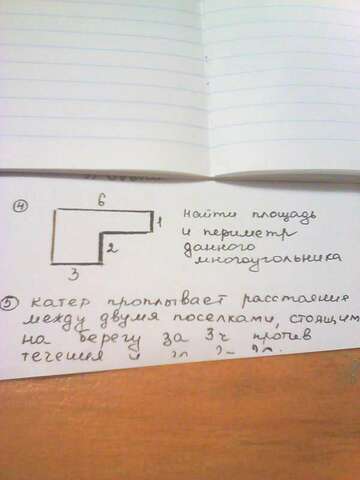 ④
6
1
2
3
найти площадь
и периметр
данного
многоугольника
⑤ катер проплывает расстояние
между двумя поселками, стоящим
на берегу за 3ч против
течения и